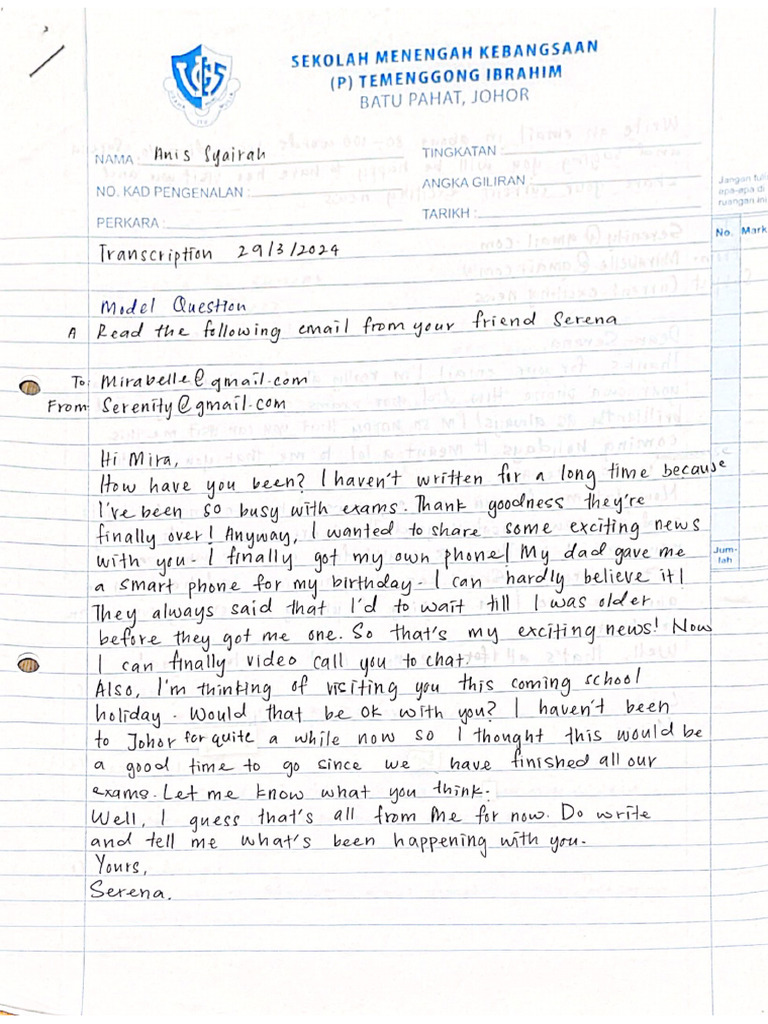 SEKOLAH MENENGAH KEBANGSAAN
(P) TEMENGGONG IBRAHIM
BATU PAHAT, JOHOR
NAMA : Anis Syairah
TINGKATAN :
NO. KAD PENGENALAN :
ANGKA GILIRAN :
PERKARA :
TARIKH :
Jangan tulis
apa-apa di
ruangan ini
No. Mark
Transcription 29/3/2024
Model Question
A Read the following email from your friend Serena
To: Mirabelle@gmail.com
From: Serenity@gmail.com
Hi Mira,
How have you been? I haven't written for a long time because
I've been so busy with exams. Thank goodness they're
finally over! Anyway, I wanted to share some exciting news
with you - I finally got my own phone! My dad gave me
a smart phone for my birthday. I can hardly believe it!
They always said that I'd to wait till I was older
before they got me one. So that's my exciting news! Now
I can finally video call you to chat.
Also, I'm thinking of visiting you this coming school
holiday. Would that be ok with you? I haven't been
to Johor for quite a while now so I thought this would be
a good time to go since we have finished all our
exams. Let me know what you think.
Well, I guess that's all from Me for now. Do write
and tell me what's been happening with you.
Yours,
Serena.
Jum-
lah